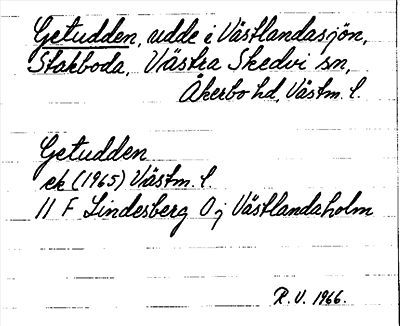 Getudden, udde i Västlandasjön,
Stokboda, Västra Skedvi sn,
Åkerbo hd, Västm. l.
Getudden
ek (1965) Västm. l.
11 F Lindesberg O j Västlandaholm
R. V. 1966.